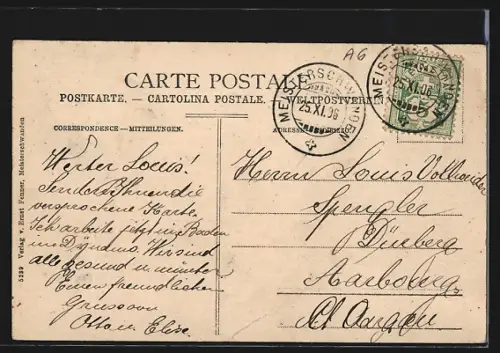 A6
CARTE POSTALE
POSTKARTE. — CARTOLINA POSTALE. — WELTPOSTVEREIN
MEISTERSCHWANDEN
25.XI.06
MEISTERSCHWANDEN
25.XI.06
5
CORRESPONDENCE — MITTEILUNGEN.
ADRESSE
5239 Verlag v. Ernst Fenner, Meisterschwanden
Werter Louis!
Sende Ihnen die
versprochene Karte.
Ich arbeite jetzt in Baden
Wir sind
alle gesund u. munter
Einen freundlichen
Gruss von
Otto u. Elise.
Herrn Louis
Spengler
Aarbourg
Kt. Aargau